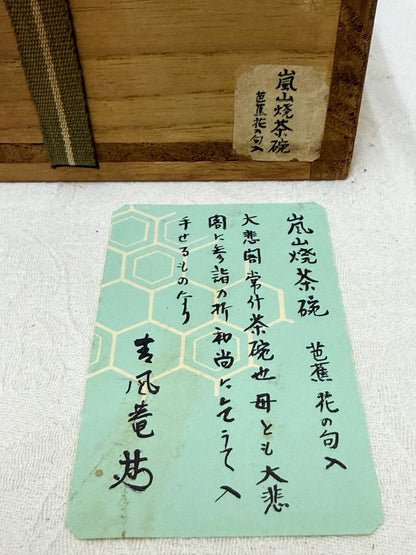 嵐山焼茶碗
芭蕉花の句入
嵐山焼茶碗 芭蕉花の句入
大悲閣常什茶碗也母とも大悲
閣に参詣の折和尚にもうて入
手せるものなり
青風竜